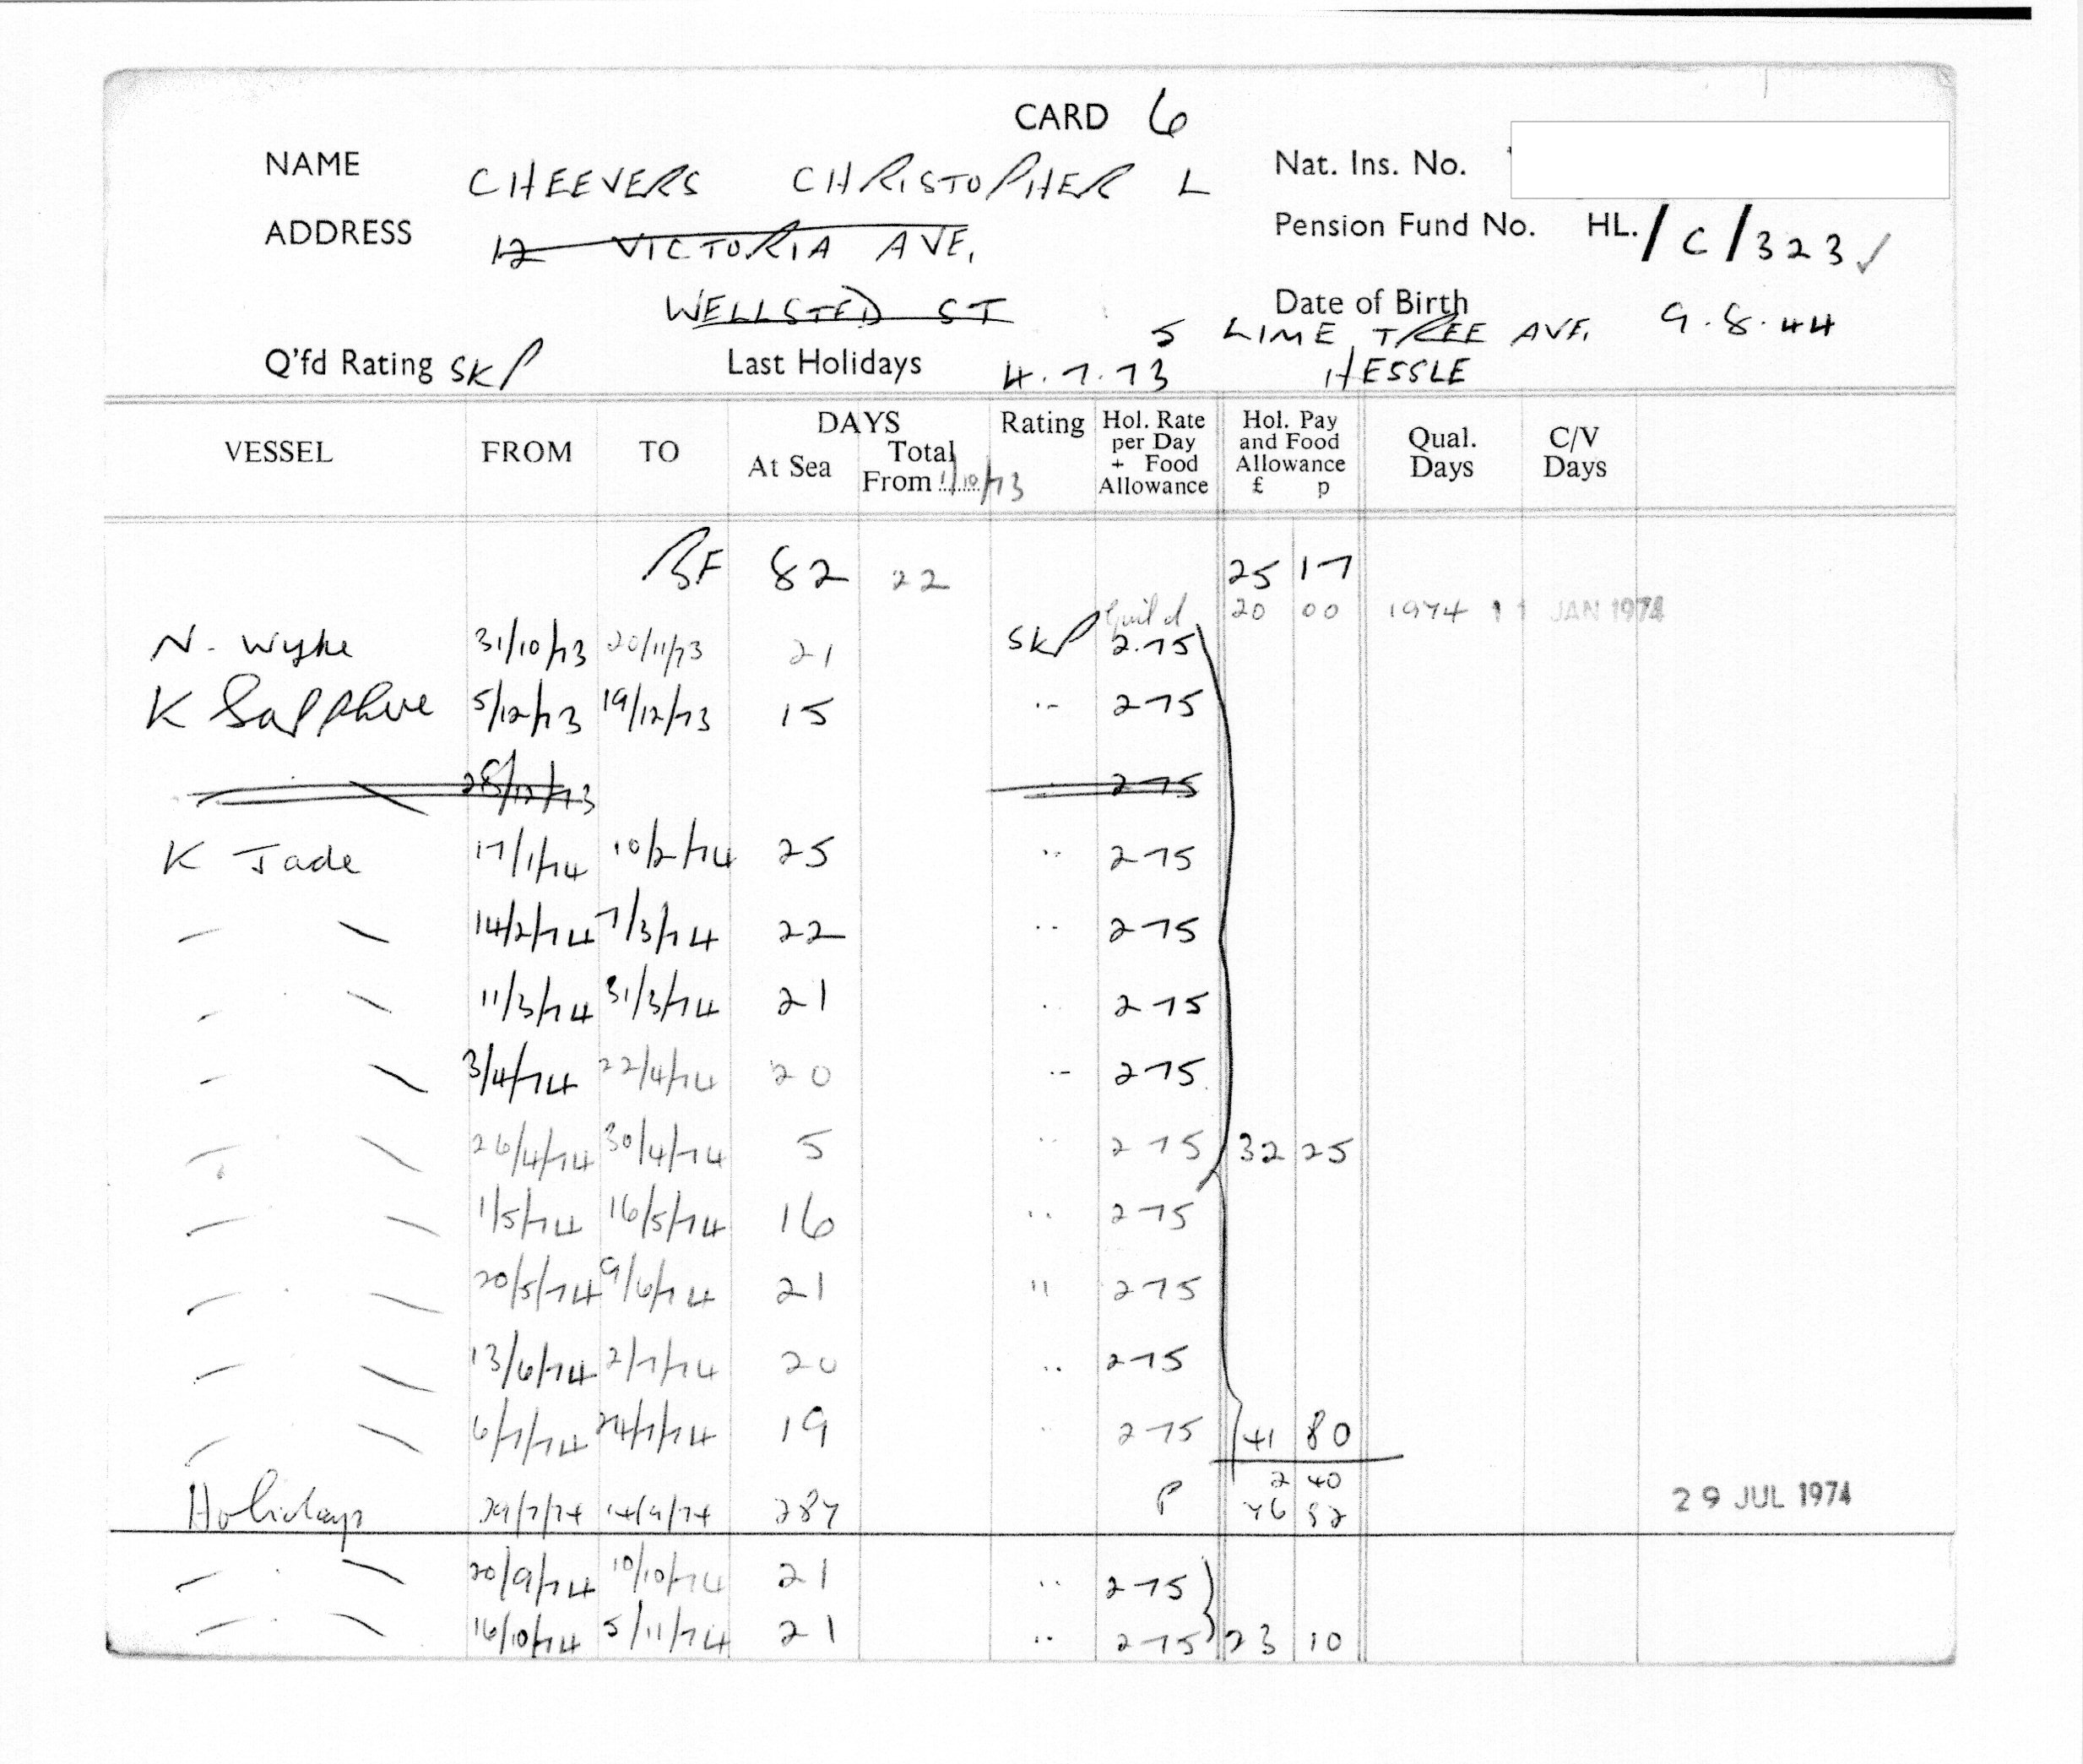 CARD 6
NAME CHEEVERS CHRISTOPHER L Nat. Ins. No.
ADDRESS 12 VICTORIA AVE, Pension Fund No. HL./C/323 ✓
WELLSTED ST Date of Birth 9.8.44
5 LIME TREE AVE.
Q'fd Rating SKP Last Holidays 4.7.73 HESSLE
VESSEL FROM TO DAYS At Sea Total From 1/10/73 Rating Hol. Rate per Day + Food Allowance Hol. Pay and Food Allowance £ p Qual. Days C/V Days
BF 82 22 25 17
Guild 20 00 1974 11 JAN 1974
N. Wyke 31/10/73 20/11/73 21 SKP 2.75
K Sapphire 5/12/73 19/12/73 15 " 275
" 28/12/73 " 275
K Jade 17/1/74 10/2/74 25 " 275
" " 14/2/74 7/3/74 22 " 275
" " 11/3/74 31/3/74 21 " 275
" " 3/4/74 22/4/74 20 " 275
" " 26/4/74 30/4/74 5 " 275 32 25
" " 1/5/74 16/5/74 16 " 275
" " 20/5/74 9/6/74 21 " 275
" " 13/6/74 2/7/74 20 " 275
" " 6/7/74 24/7/74 19 " 275 41 80
2 40
Holidays 29/7/74 14/9/74 287 P 76 82 29 JUL 1974
" " 20/9/74 10/10/74 21 " 275
" " 16/10/74 5/11/74 21 " 275 23 10